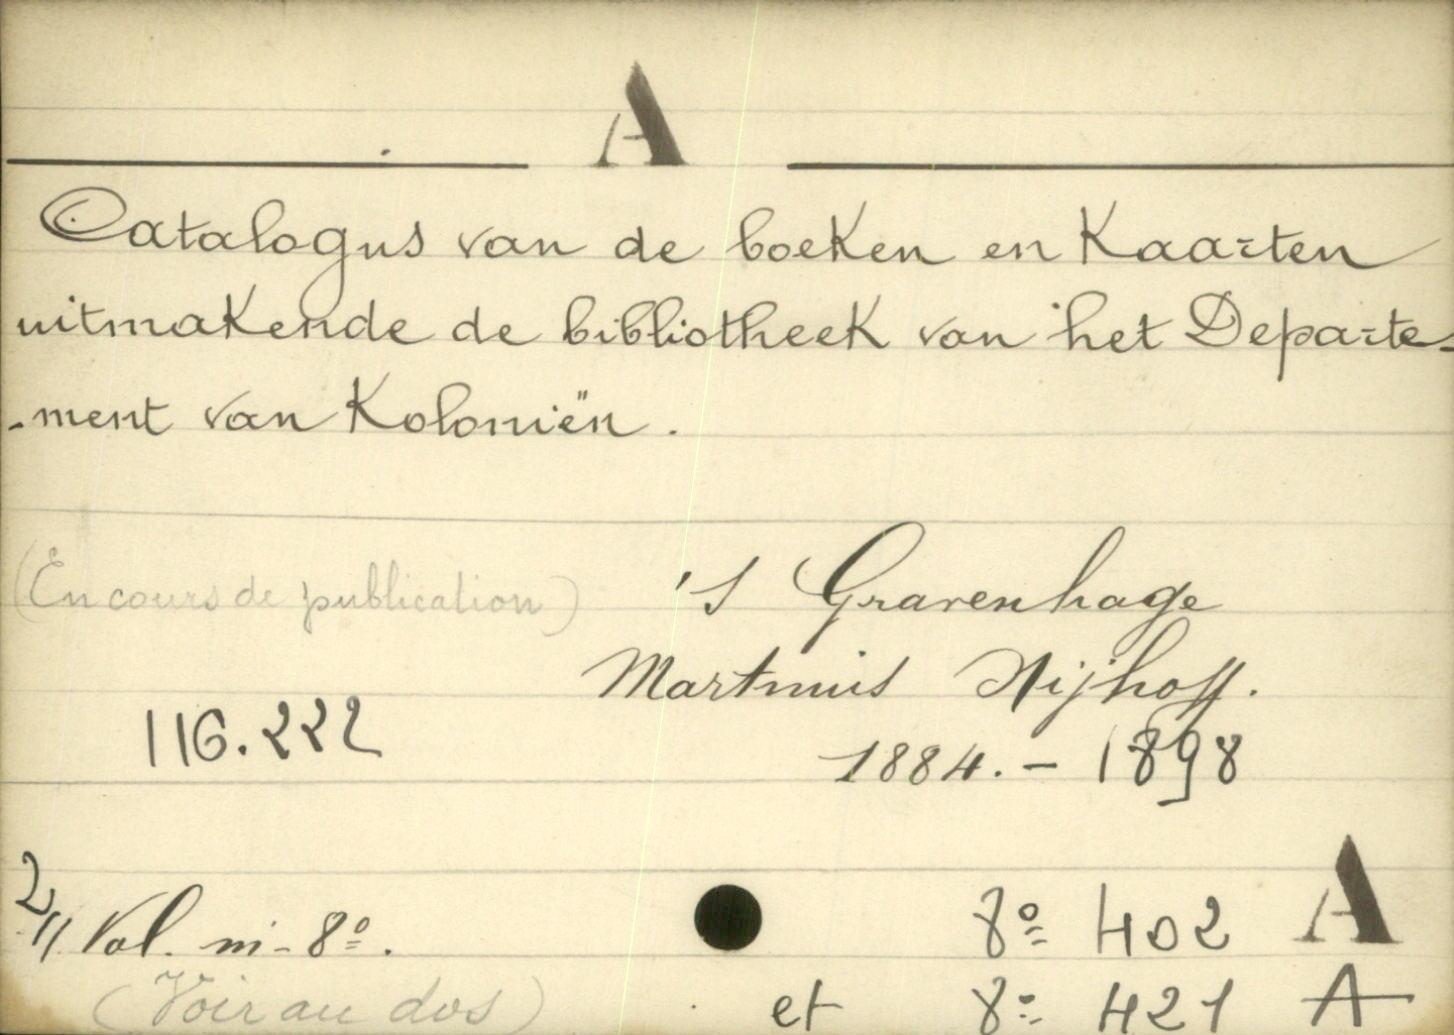 A
Catalogus van de boeken en Kaarten
uitmakende de bibliotheek van het Departe-
-ment van Koloniën.
(En cours de publication) 's Gravenhage
Martinus Nijhoff.
116.222
1884. - 1898
2 Vol. in-8º. 8º 402 A
(Voir au dos) et 8º 421 A